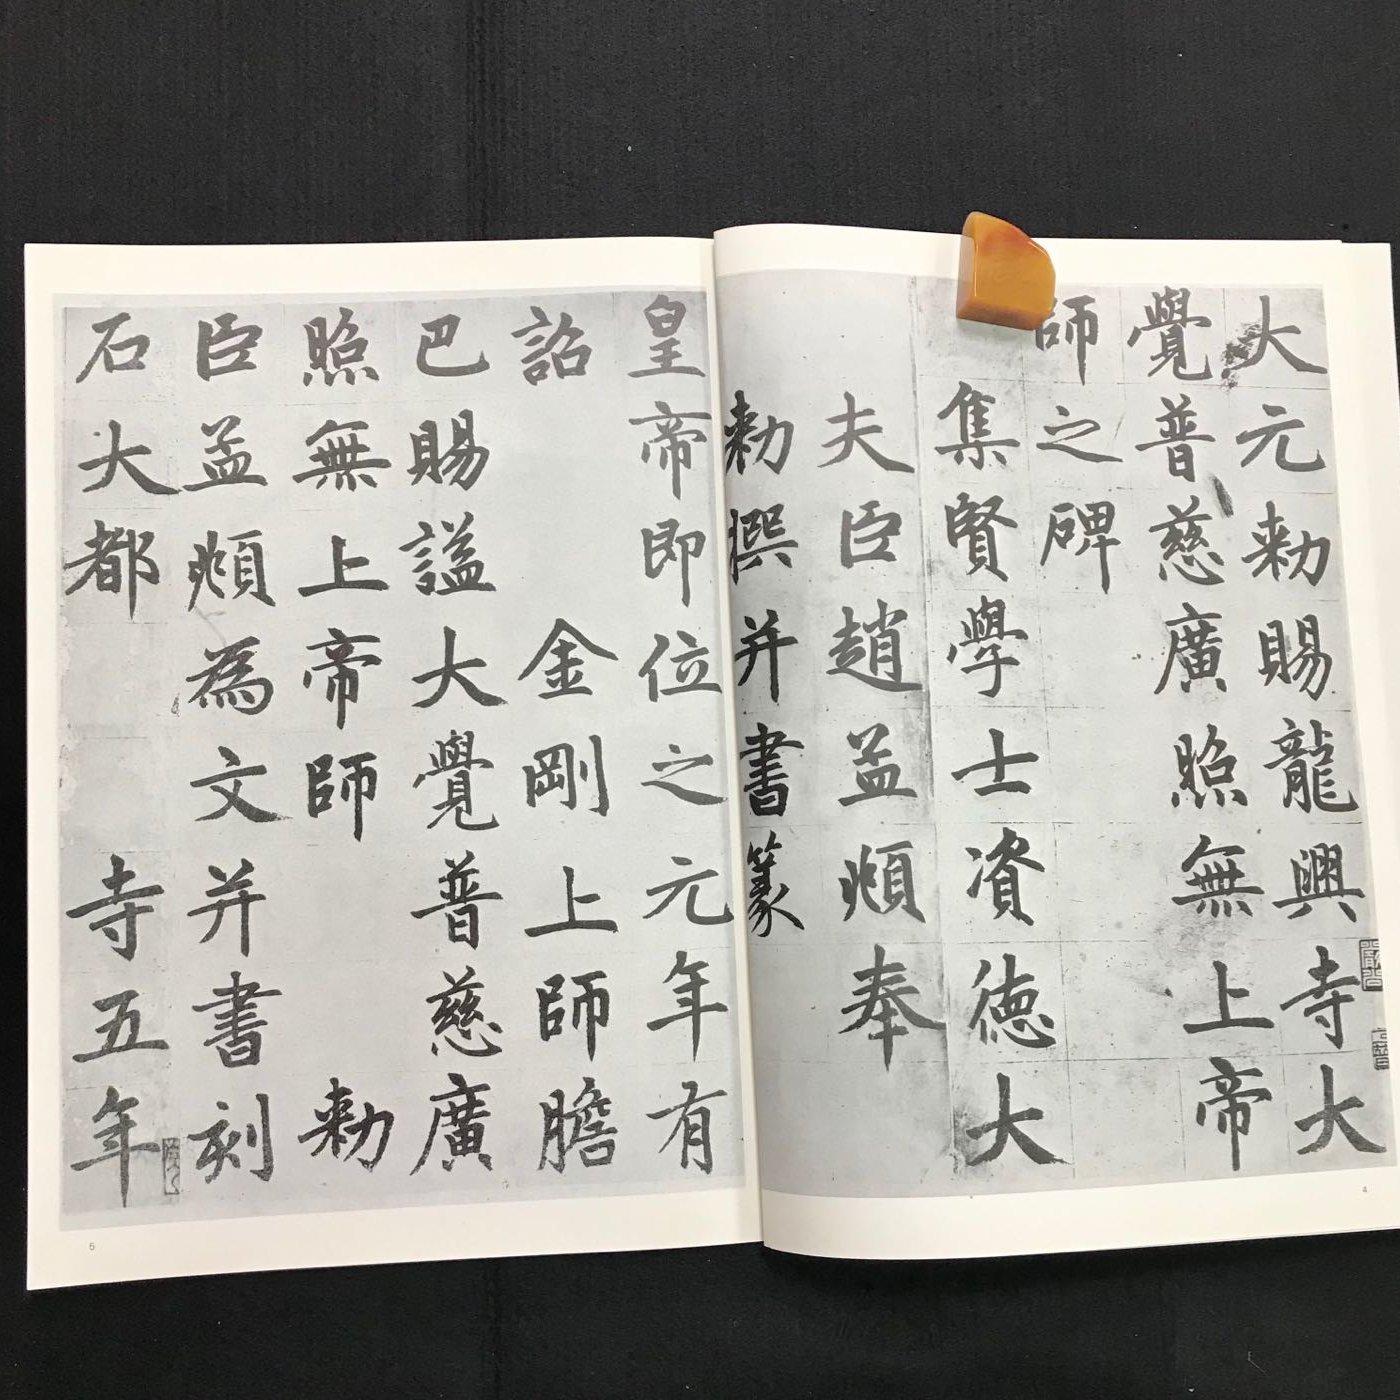 大元敕賜龍興寺大
覺普慈廣照無上帝
師之碑
集賢學士資德大
夫臣趙孟頫奉
敕撰并書篆
皇帝即位之元年有
詔金剛上師膽
巴賜謚大覺普慈廣
照無上帝師敕
臣孟頫為文并書刻
石大都寺五年
4
6